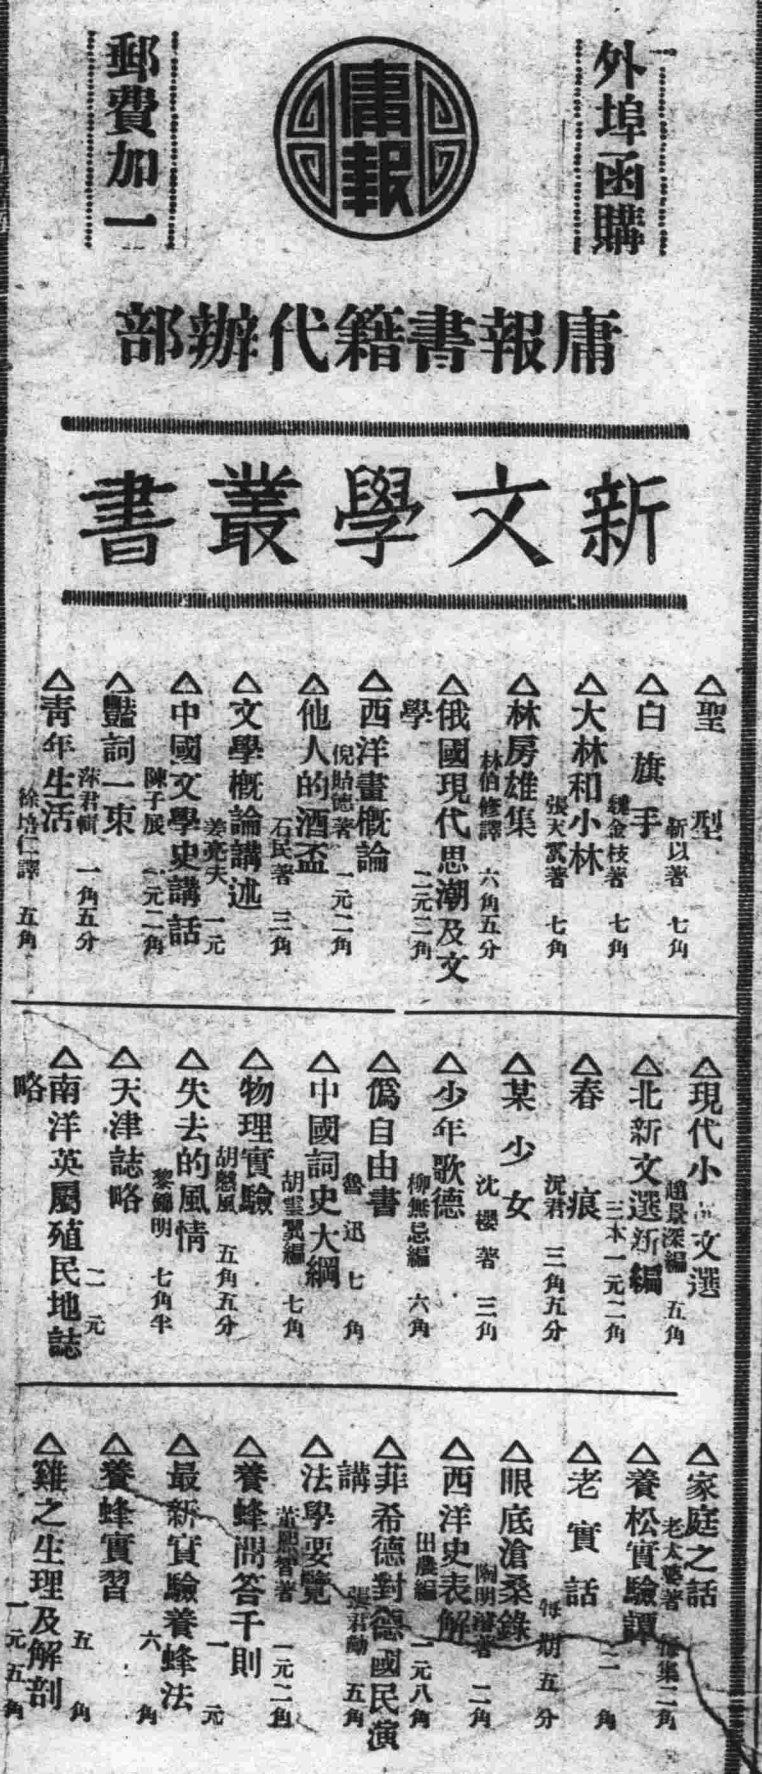 外埠函購
庸報
郵費加一
庸報書籍代辦部
新文學叢書
△聖型
靳以著 七角
△白旗手
魏金枝著 七角
△大林和小林
張天翼著 七角
△林房雄集
林伯修譯 六角五分
△俄國現代思潮及文學
二元二角
△西洋畫概論
倪貽德著 一元二角
△他人的酒盃
石民著 三角
△文學概論講述
姜亮夫 一元
△中國文學史講話
陳子展 一元二角
△豔詞一束
萍君輯 一角五分
△青年生活
徐培仁譯 五角
△現代小品文選
趙景深編 五角
△北新文選新編
三本一元二角
△春痕
沅君 三角五分
△某少女
沈櫻著 三角
△少年歌德
柳無忌編 六角
△僞自由書
魯迅 七角
△中國詞史大綱
胡雲翼編 七角
△物理實驗
胡愨風 五角五分
△失去的風情
黎錦明 七角半
△天津誌略
二元
△南洋英屬殖民地誌略
△家庭之話
老太婆著 每集二角
△養松實驗譚
二角
△老實話
每期五分
△眼底滄桑錄
陶明濬著 二角
△西洋史表解
田農編 一元八角
△菲希德對德國民演講
張君勱 五角
△法學要覽
董熙智著 一元二角
△養蜂問答千則
一元
△最新實驗養蜂法
六角
△養蜂實習
五角
△雞之生理及解剖
一元五角